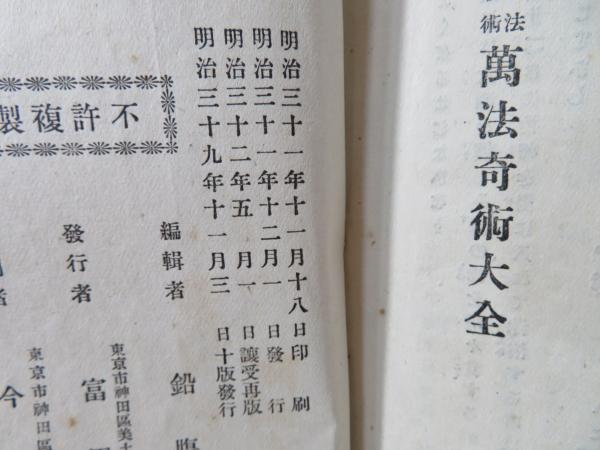 法術
萬法奇術大全
明治三十一年十一月十八日印刷
明治三十一年十二月一日發行
明治三十二年五月一日讓受再版
明治三十九年十一月三日十版發行
不許複製
編輯者
鉛
發行者
東京市神田區美土
富
東京市神田區
今